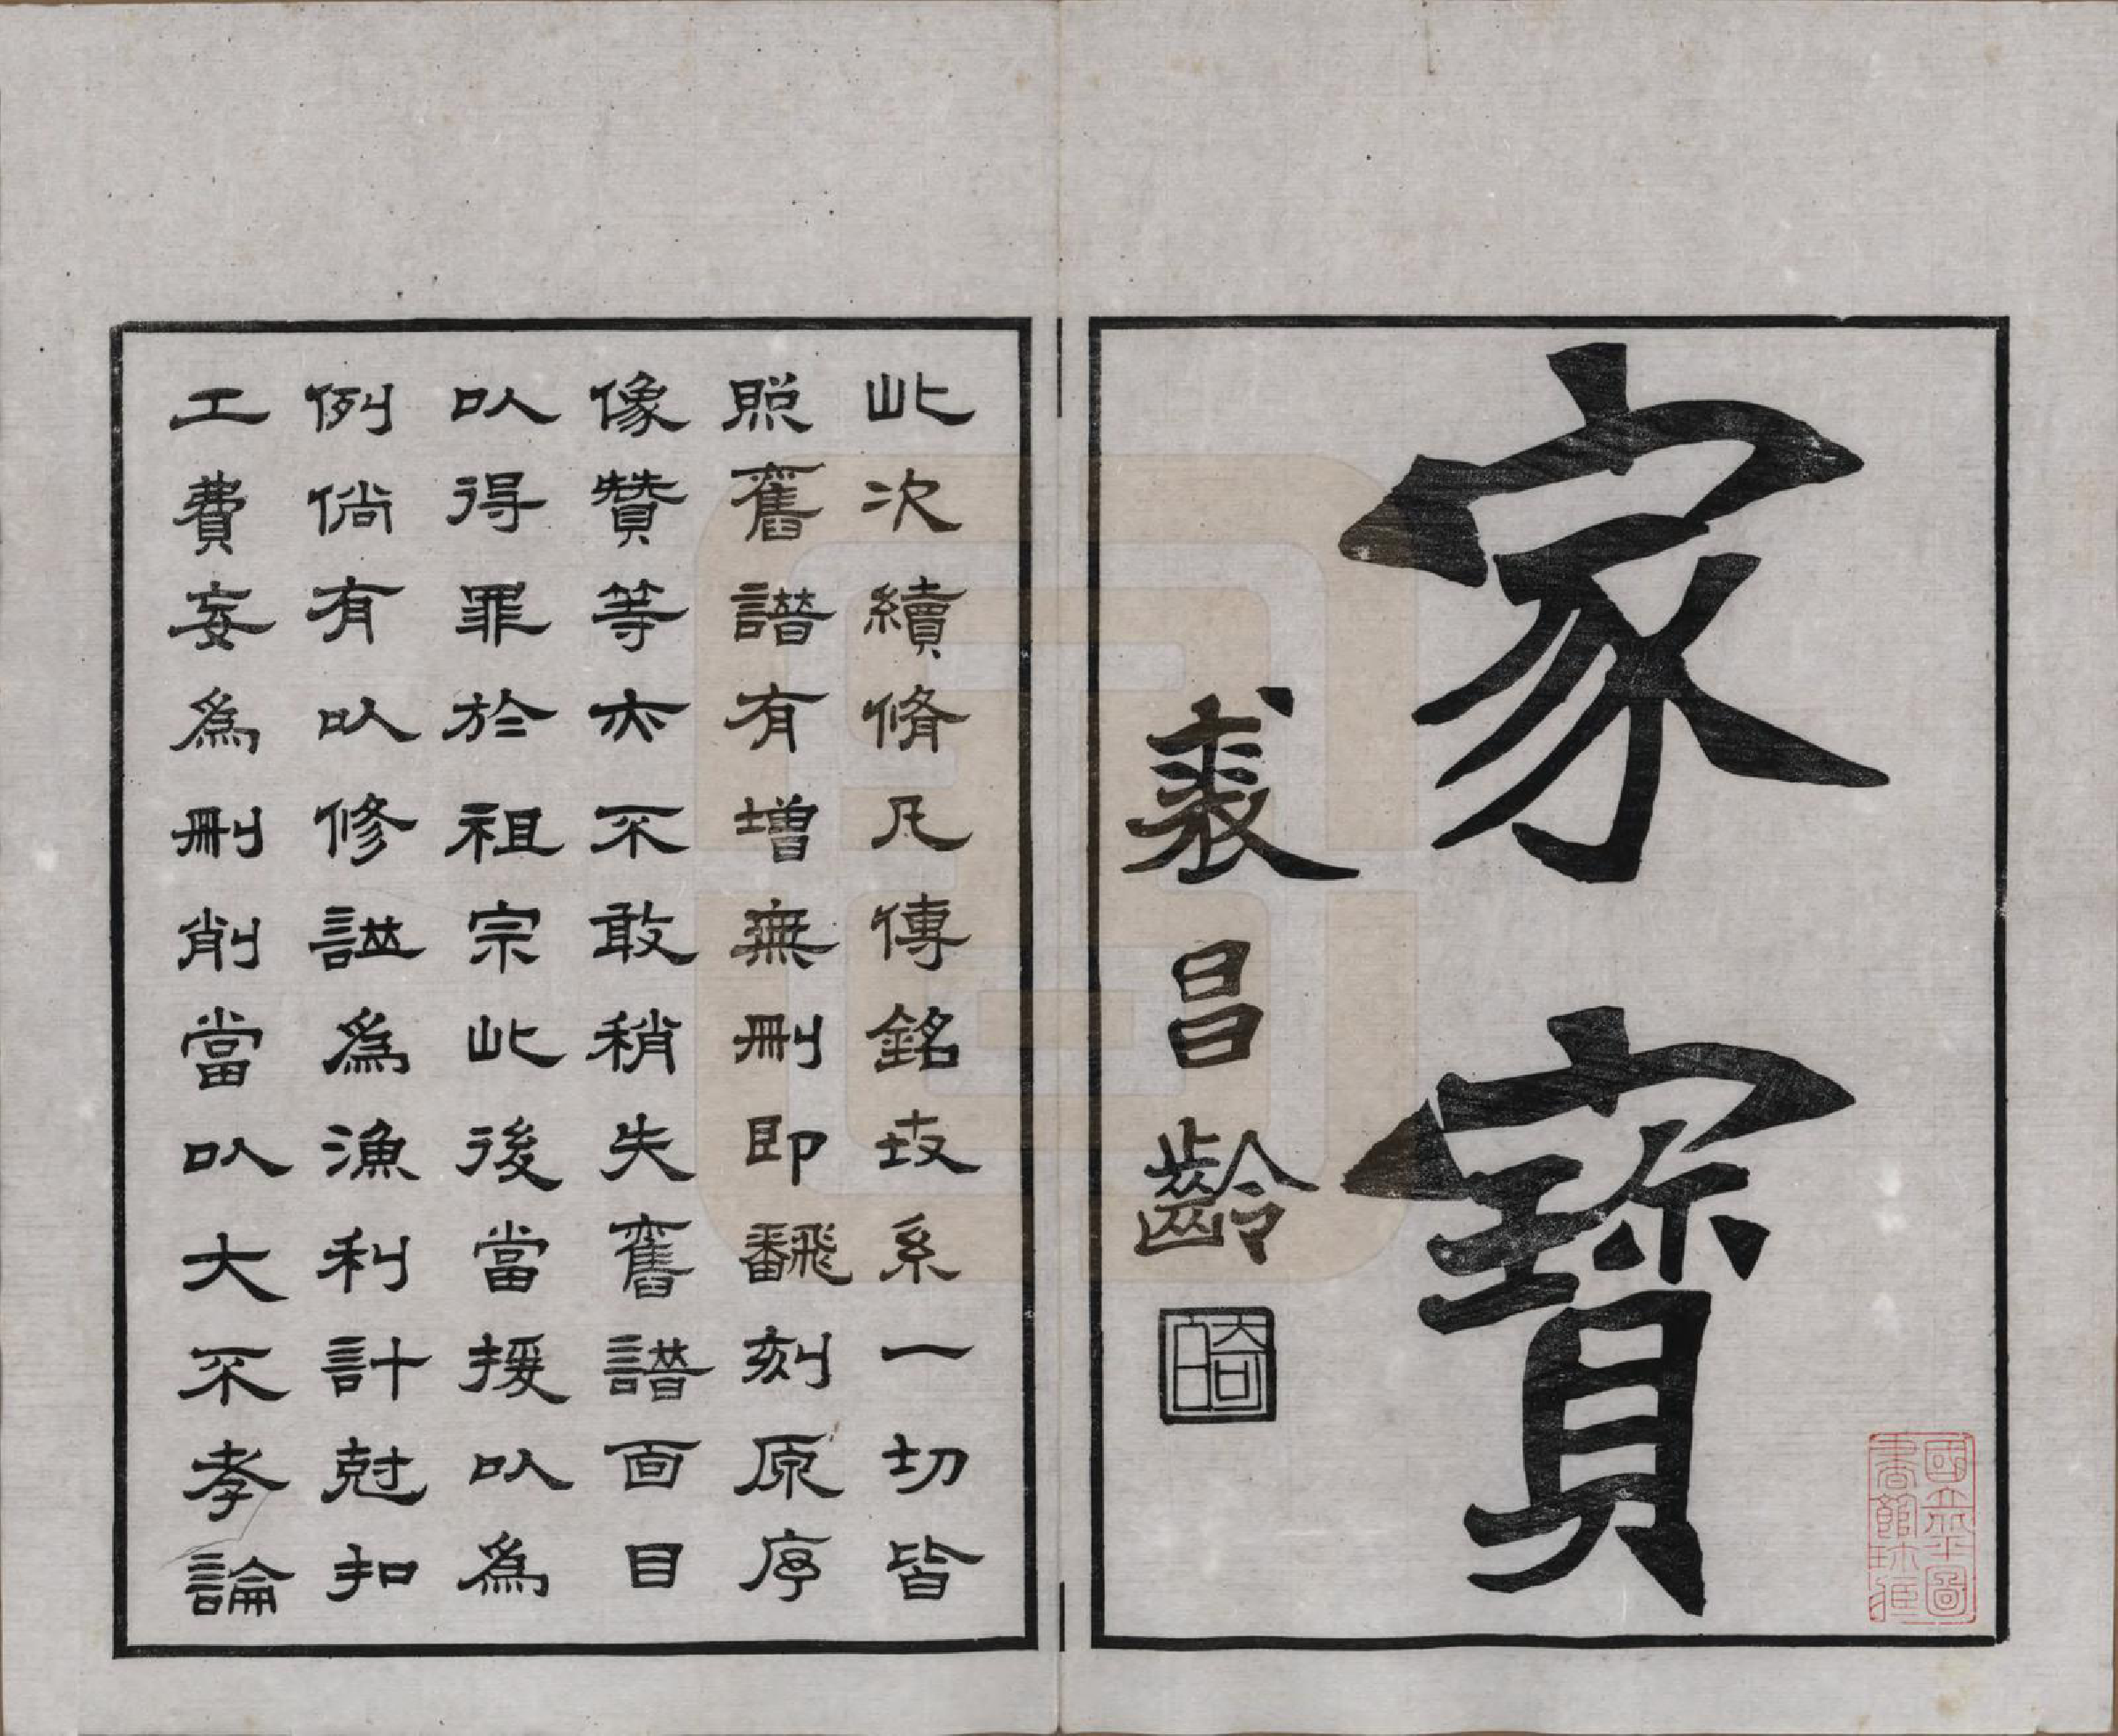 家寶
裘昌齡
國立北平圖
書館珍藏
此次續脩凡傳銘支系一切皆
照舊譜有增無刪即飜刻原序
像贊等亦不敢稍失舊譜面目
以得罪於祖宗此後當援以為
例倘有以修譜為漁利計尅扣
工費妄為刪削當以大不孝論